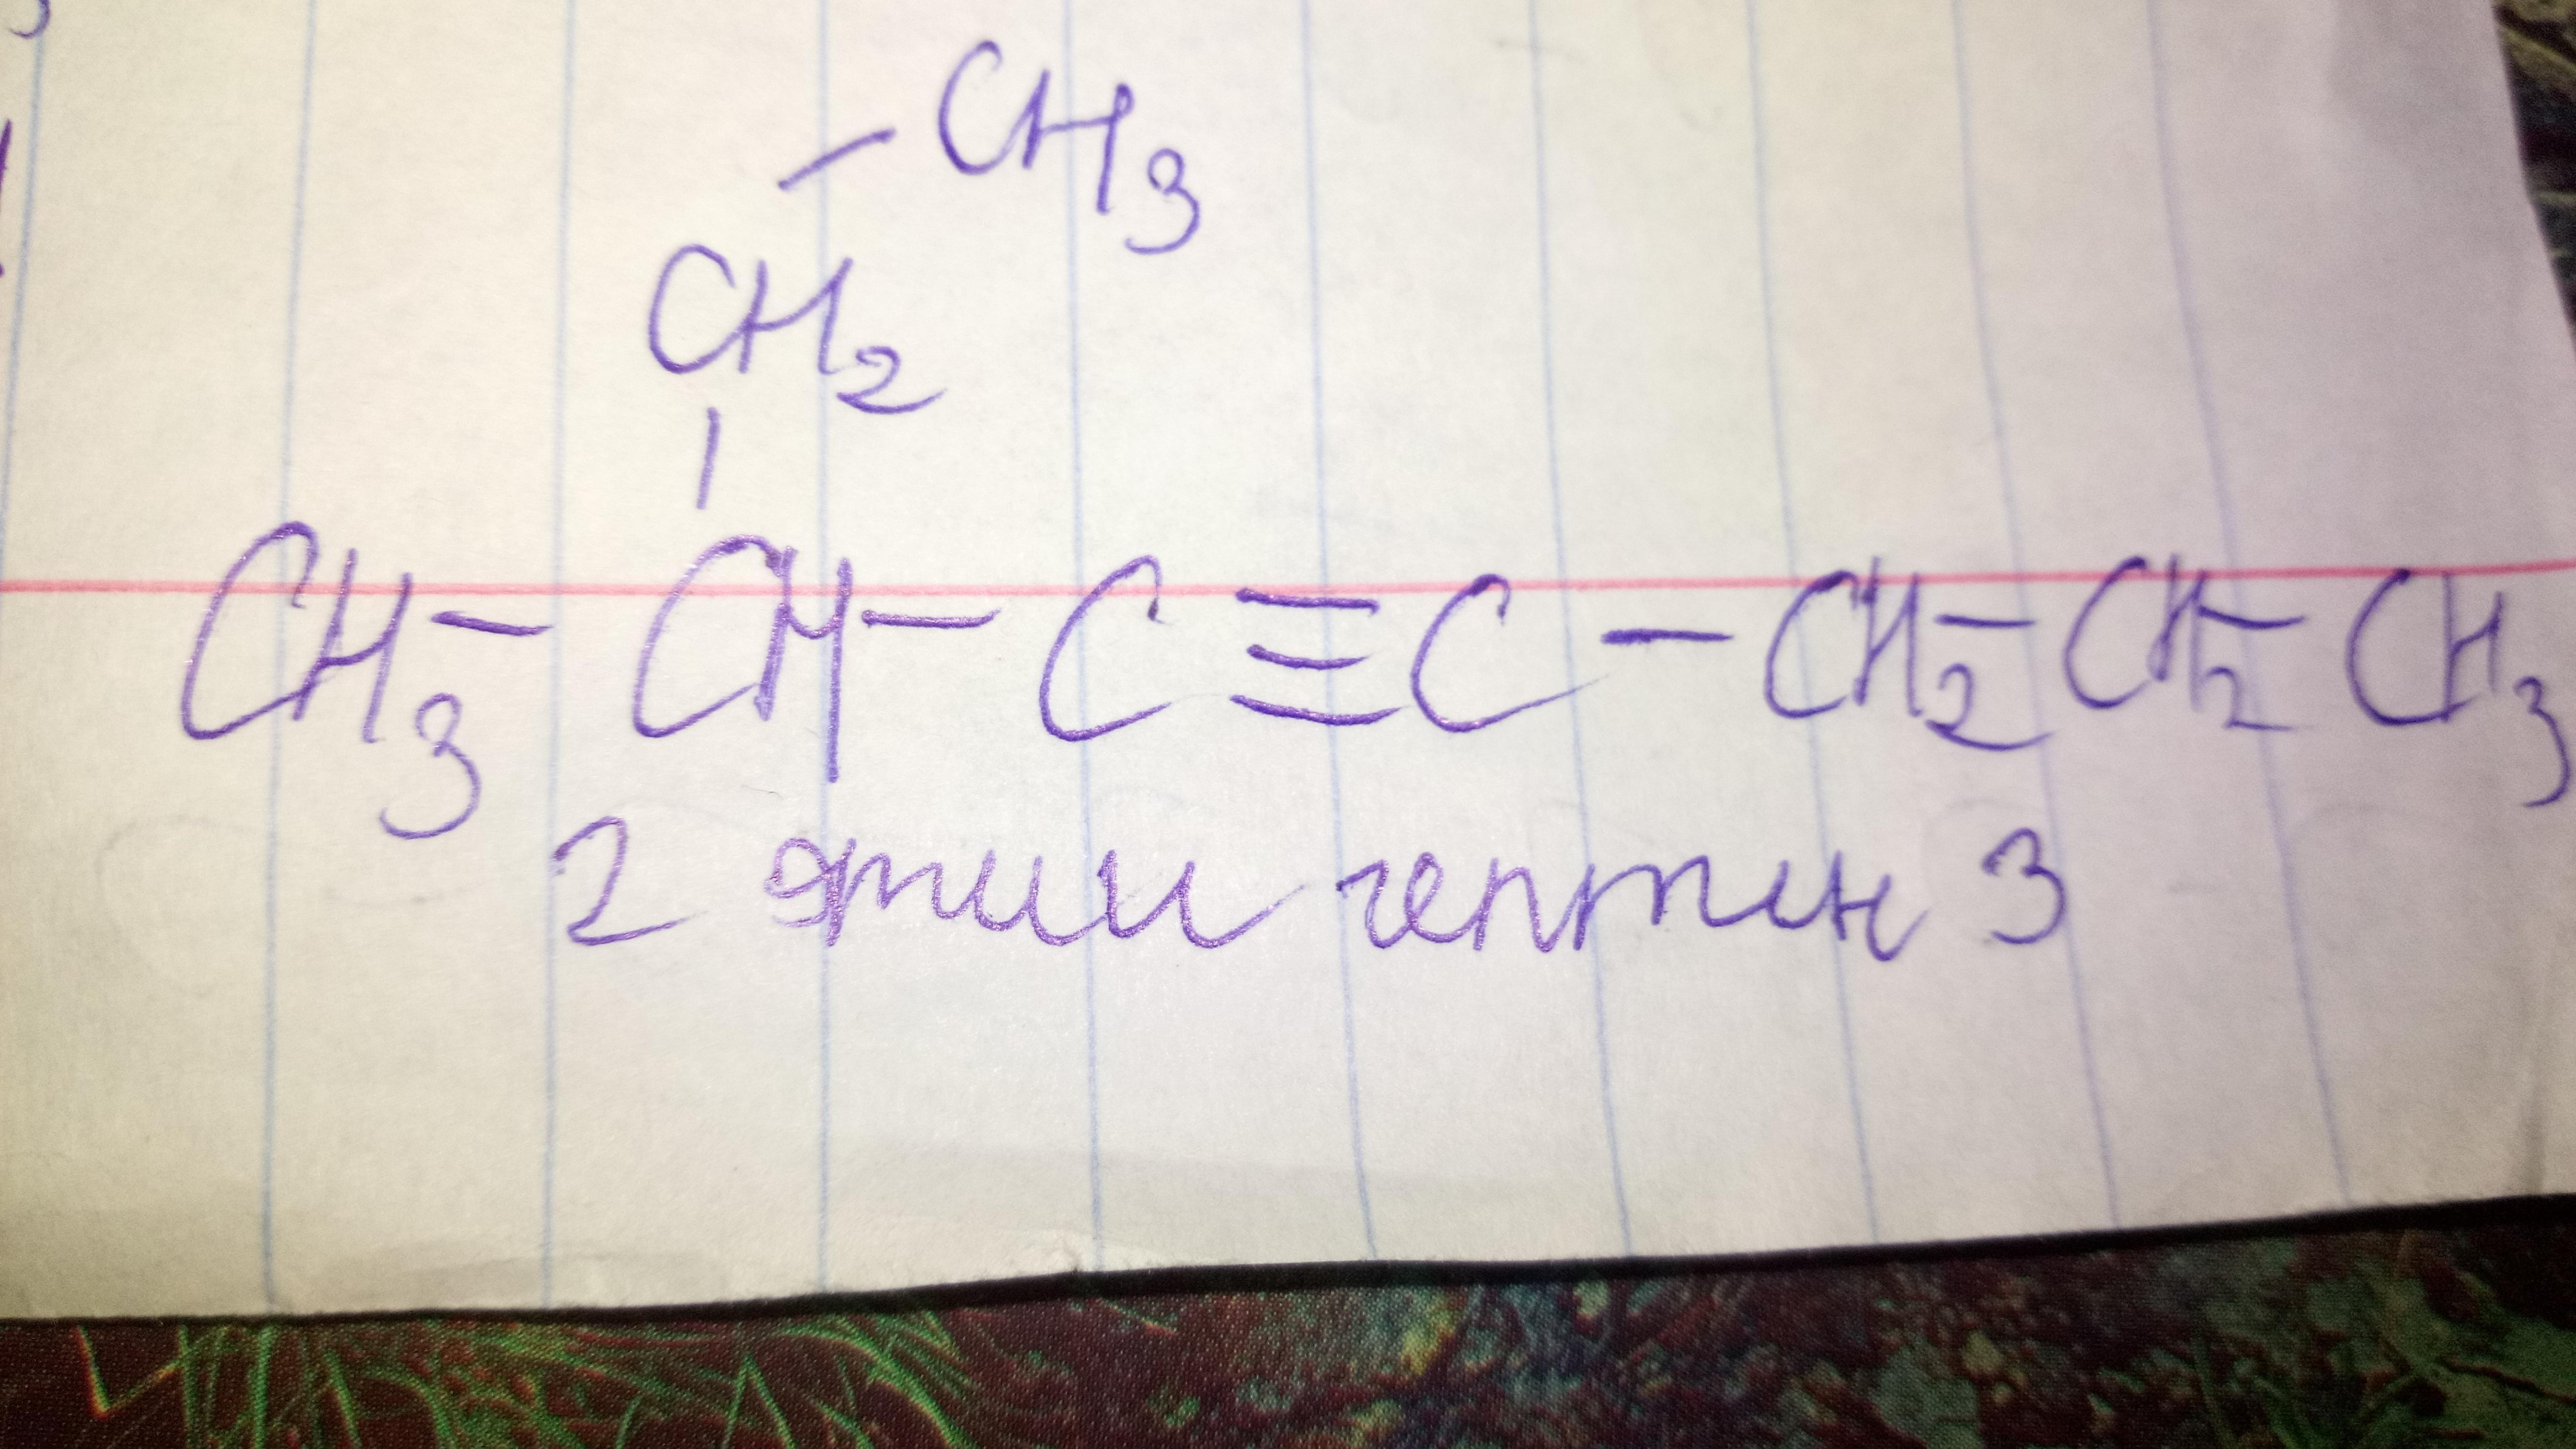 - CH3
CH2
|
CH3 - CH - C ≡ C - CH2 - CH2 - CH3
2 этил гептин 3